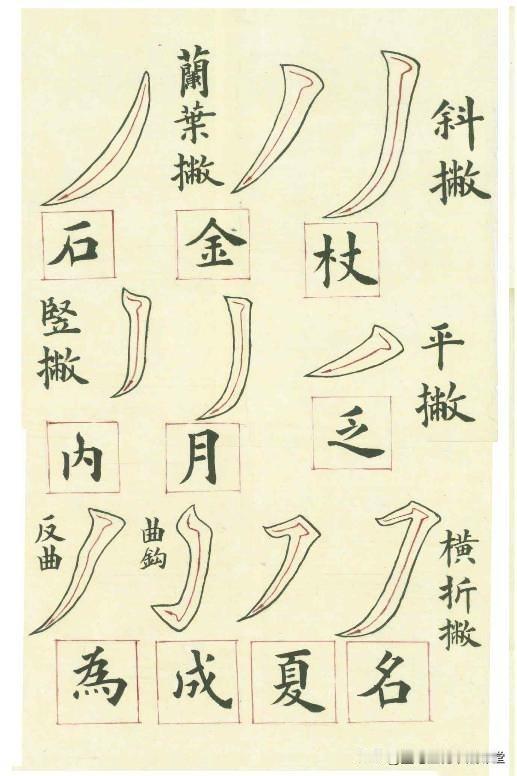 斜撇
蘭葉撇
杖
金
石
平撇
竪撇
乏
月
内
横折撇
曲鈎
反曲
名
夏
成
為
堂